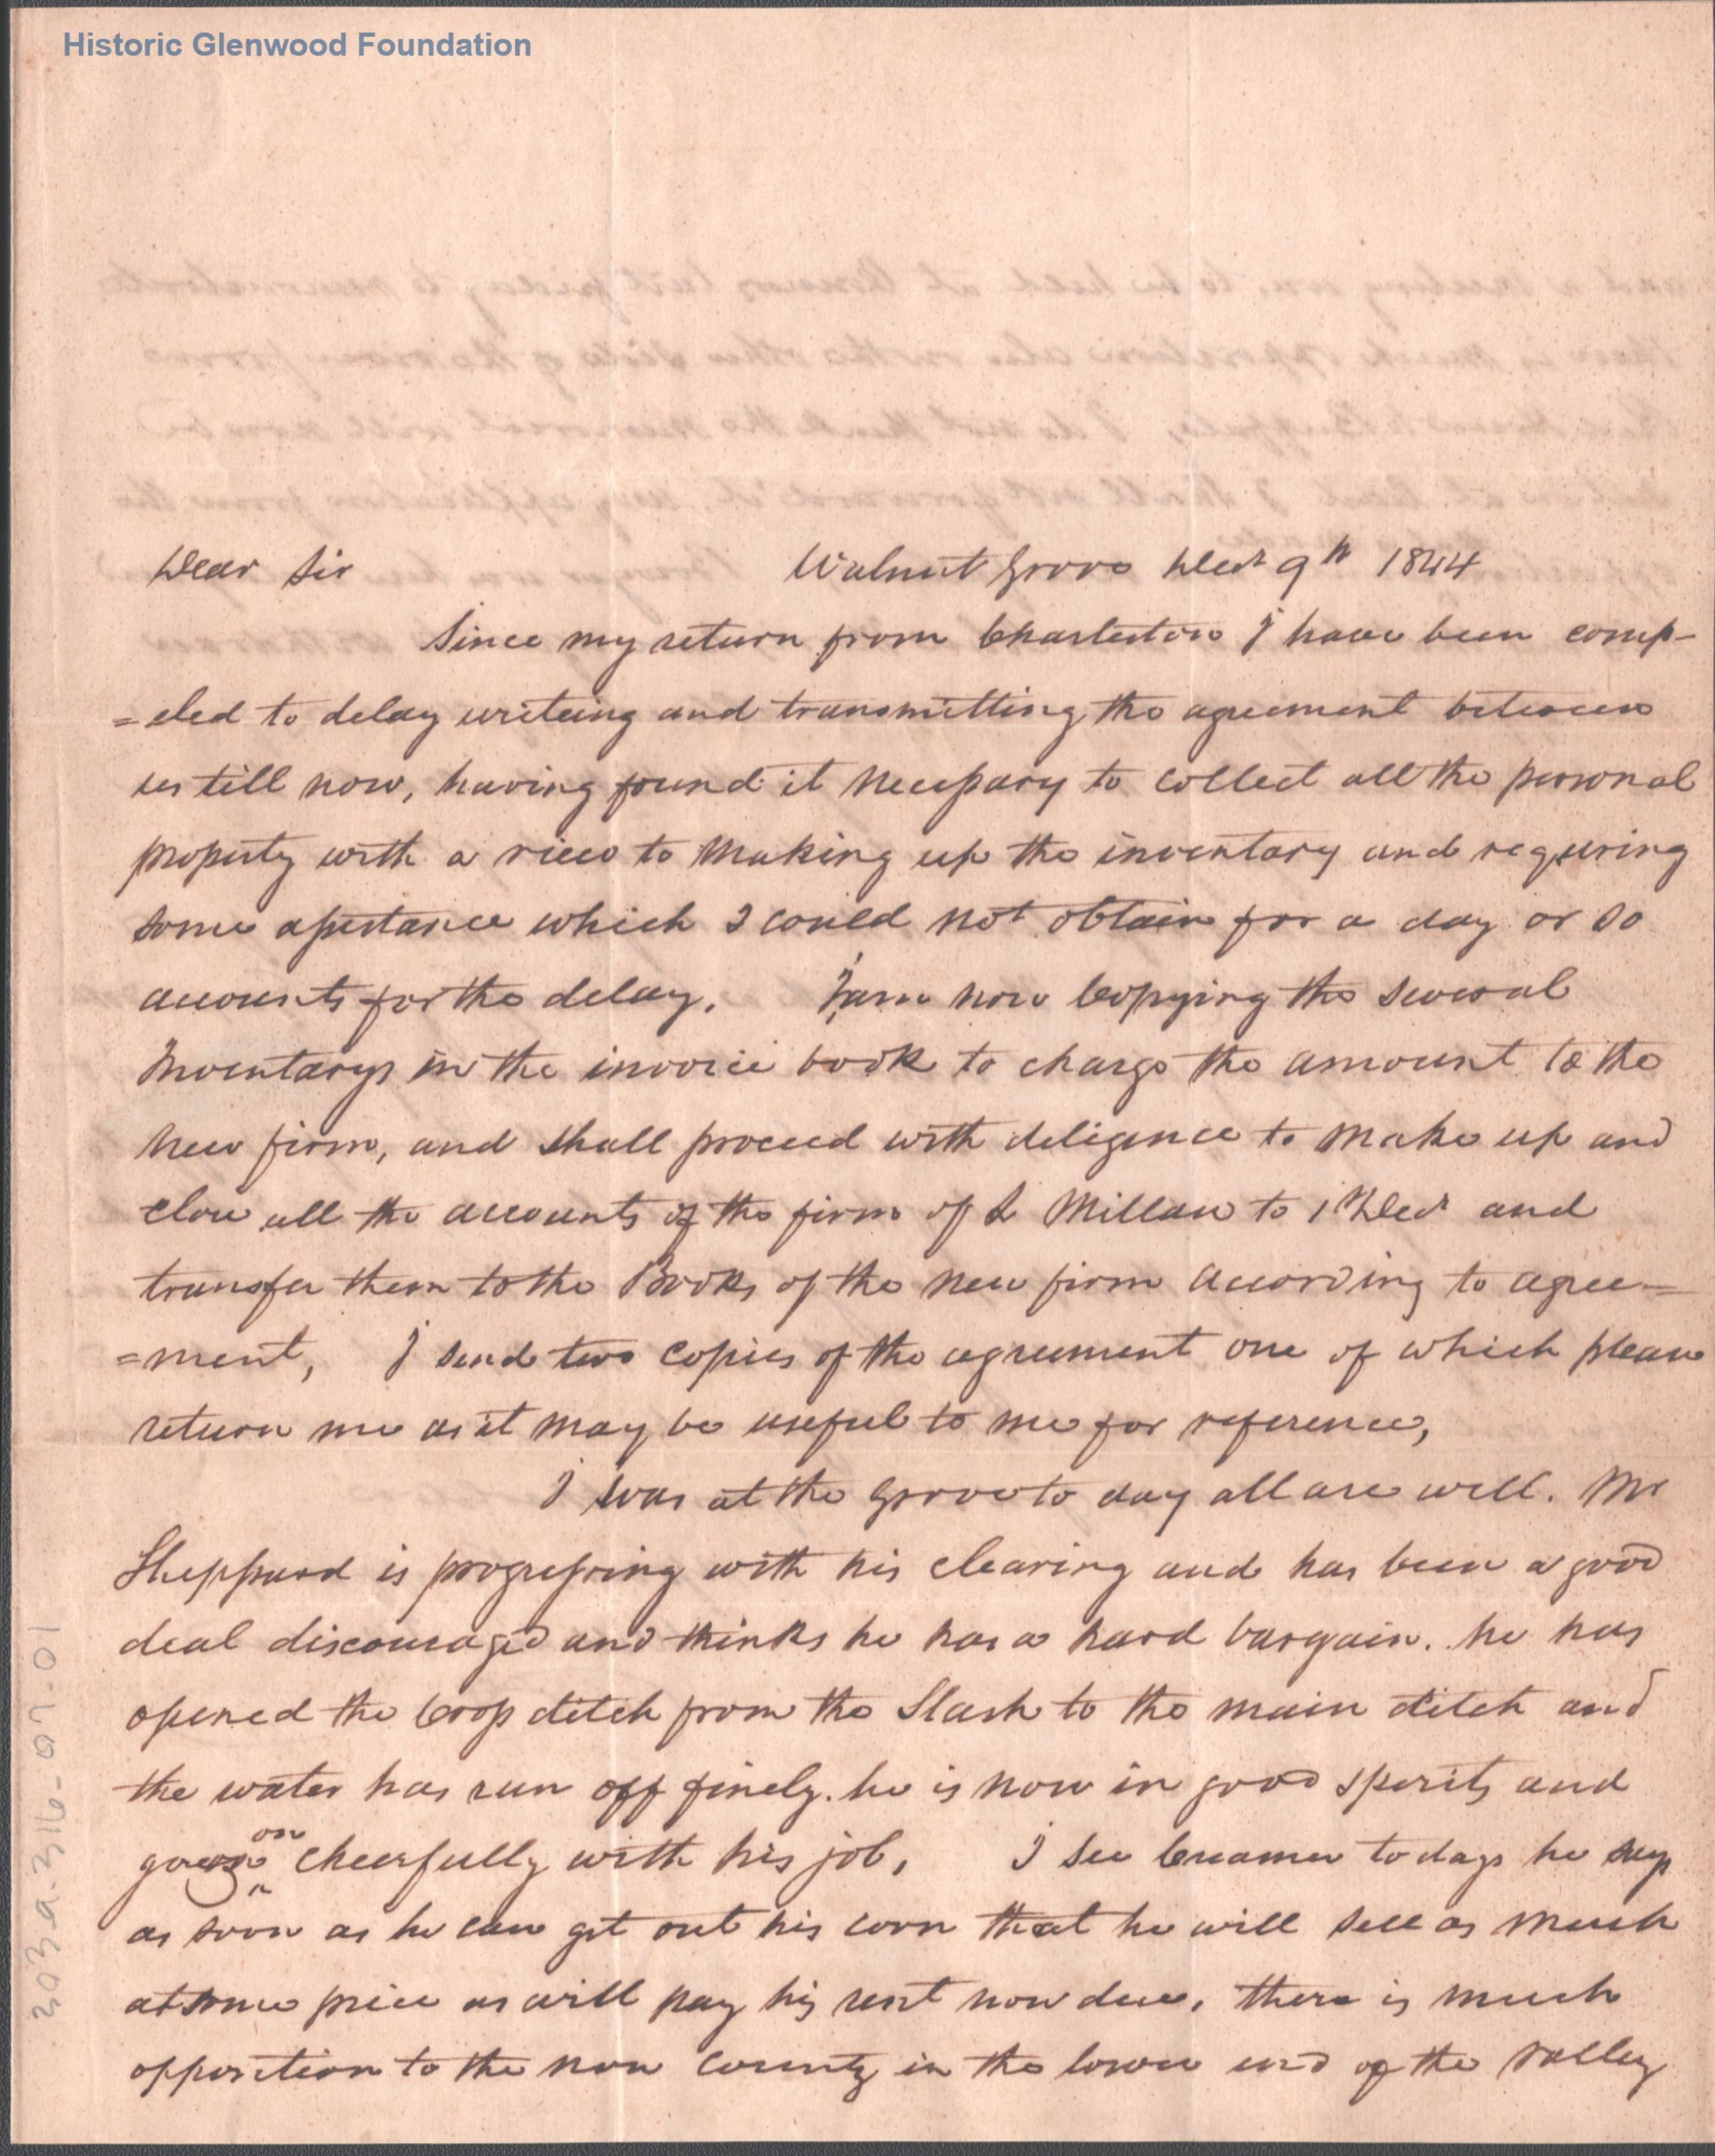 Historic Glenwood Foundation
Dear Sir Walnut Grove Decr 9th 1844
Since my return from Charleston I have been comp-
=eled to delay writeing and transmitting the agreement between
us till now, having found it necessary to collect all the personal
property with a view to making up the inventory and requring
some assistance which I could not obtain for a day or so
accounts for the delay. I am now Copying the several
Inventarys in the invoice book to charge the amount to the
new firm, and shall proceed with deligence to make up and
close all the accounts of the firm of L Millan to 1 Decr and
transfer them to the Books of the new firm according to agree=
=ment, I send two copies of the agreement one of which please
return me as it may be useful to me for reference,
I was at the Grove to day all are well. Mr
Sheppard is progressing with his clearing and has been a good
deal discouraged and thinks he has a hard bargain. he has
opened the Croop ditch from the Slash to the main ditch and
the water has run off finely. he is now in good sperits and
goes on cheerfully with his job, I see Creamer to day he says
as soon as he can get out his corn that he will sell as much
at some price as will pay his rent now due, there is much
opposition to the new County in the lower end of the valley
203a.316-07-01